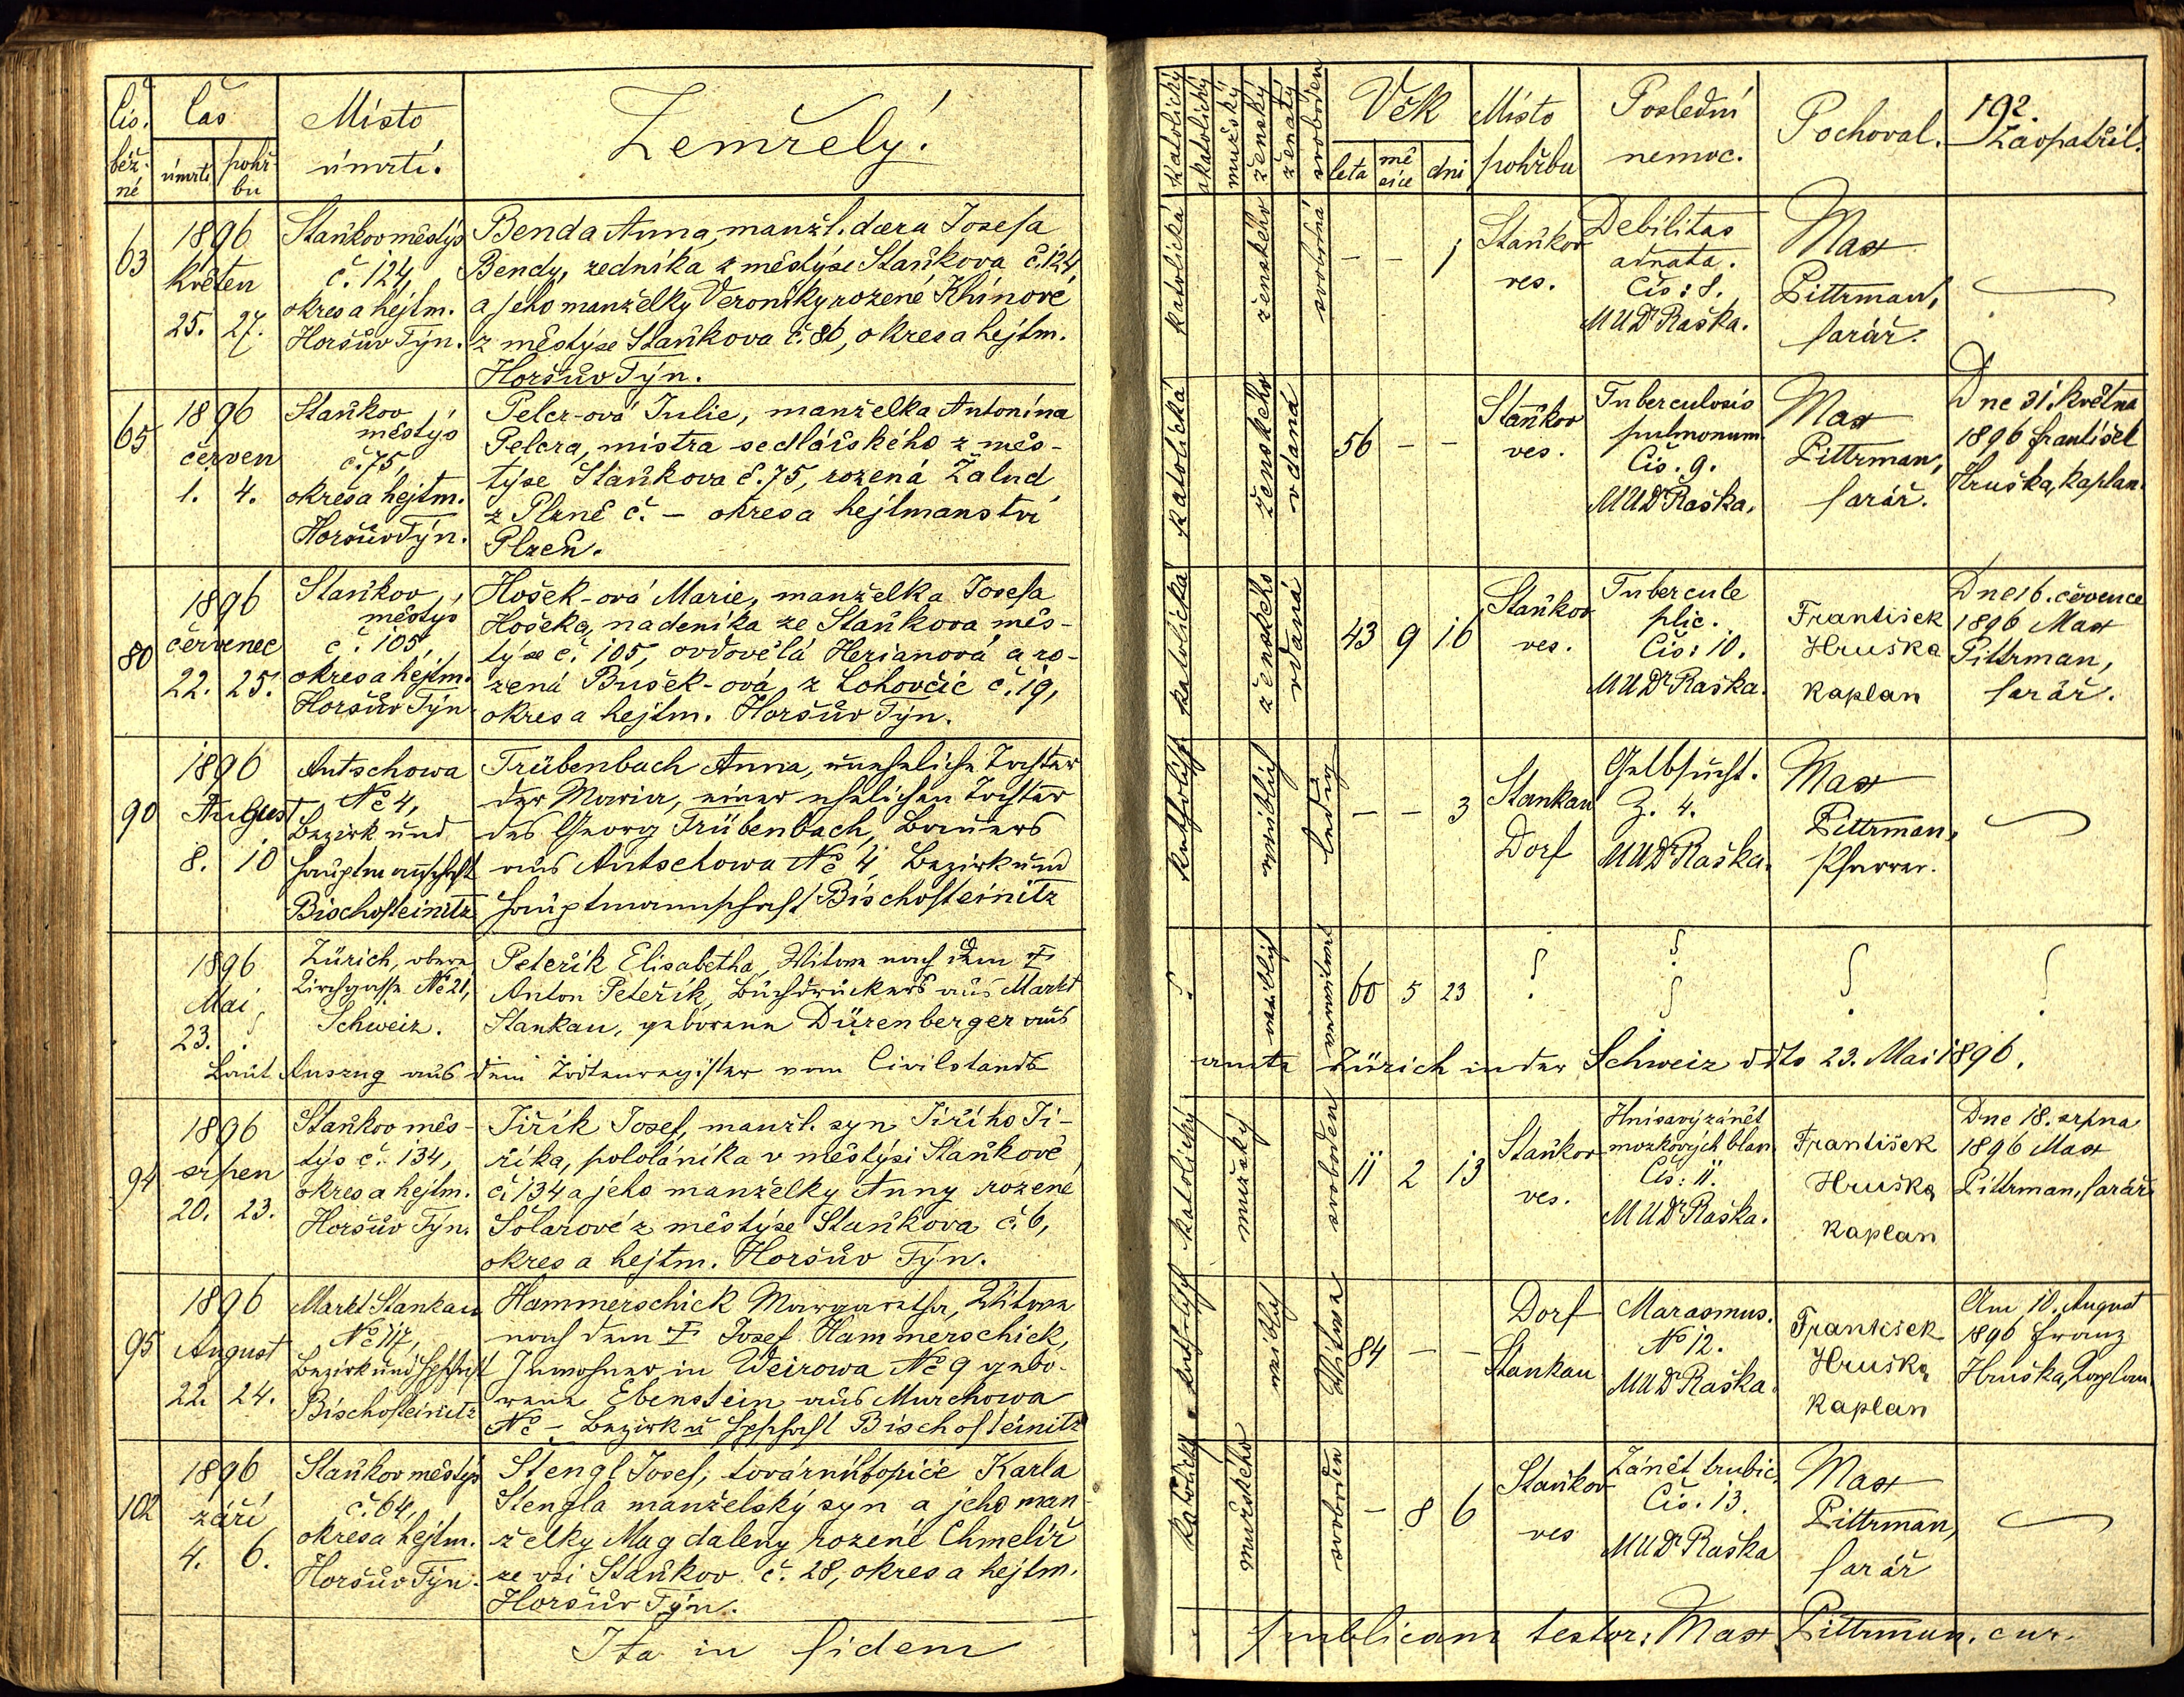 Čís. běž. né
Čas
úmrtí
pohř bu
Místo
úmrtí.
Zemřelý!
63
1896
Květen
25. 27.
Staňkov městýs
č. 124,
okres a hejtm.
Horšův Týn.
Benda Anna, manžl. dcera Josefa
Bendy, zedníka z městýse Staňkova č. 124,
a jeho manželky Veroniky rozené Khínové
z městýse Staňkova č. 86, okres a hejtm.
Horšův Týn.
65
1896
červen
1. 4.
Staňkov
městýs
č. 75,
okres a hejtm.
Horšův Týn.
Pelcr-ová Julie, manželka Antonína
Pelcra, mistra sedlářského z měs-
týse Staňkova č. 75, rozená Žalud
z Plzně č. – okres a hejtmanství
Plzeň.
80
1896
červenec
22. 25.
Staňkov,
městýs
č. 105,
okres a hejtm.
Horšův Týn
Hošek-ová Marie, manželka Josefa
Hošeka, nadeníka ze Staňkova měs-
týse č. 105, ovdovělá Herianová a ro-
zená Bušek-ová z Lohovčic č. 19,
okres a hejtm. Horšův Týn.
90
1896
August
8. 10
Autschowa
No 4,
Bezirk und
Hauptmannschaft
Bischofteinitz
Trübenbach Anna, uneheliche Tochter
der Maria, einer ehelichen Tochter
des Georg Trübenbach, Bauers
aus Autschowa No 4, Bezirk und
Hauptmannschaft Bischofteinitz
1896
Mai
23. ?
Zürich, obere
Kirchgasse No 21,
Schweiz.
Peteřík Elisabetha, Witwe nach dem †
Anton Peteřík, Buchdruckers aus Markt
Stankau, geborene Dürenberger aus
Laut Auszug aus dem Todtenregister vom Civilstands
94
1896
srpen
20. 23.
Staňkov měs-
týs č. 134,
okres a hejtm.
Horšův Týn.
Jiřík Josef, manžl. syn Jiřího Ji-
říka, pololáníka v městýsi Staňkově
č. 134 a jeho manželky Anny rozené
Šolarové z městýse Staňkova č. 6,
okres a hejtm. Horšův Týn.
95
1896
August
22. 24.
Markt Stankau
No 117,
Bezirk und Hptschaft
Bischofteinitz
Hammerschick Margaretha, Witwe
nach dem † Josef Hammerschick,
Inwohner in Weirowa No 9 gebo-
rene Ebenstein aus Murchowa
No –, Bezirk u Hptschaft Bischofteinitz
102
1896
září
4. 6.
Staňkov městýs
č. 64,
okres a hejtm.
Horšův Týn.
Stengl Josef, továrníh topiče Karla
Stengla manželský syn a jeho man-
želky Magdaleny rozené Chmelíř
ze vsi Staňkov č. 28, okres a hejtm.
Horšův Týn.
Ita in fidem
192.
katolický
akatolický
mužský
ženský
ženatý
svoboden
Věk
leta
mě síce
dni
Místo
pohřbu
Poslední
nemoc.
Pochoval.
Zaopatřil.
katolická
ženského
svobodná
– – 1
Staňkov
ves.
Debilitas
adnata.
Čís: 8.
MUDr Raška.
Max
Pittrman,
farář.
katolická
ženského
vdaná
56 – –
Staňkov
ves.
Tuberculosis
pulmonum
Čís. 9.
MUDr Raška.
Max
Pittrman,
farář.
Dne 31. května
1896 František
Hruška, kaplan.
katolická
ženského
vdaná
43 9 16
Staňkov
ves.
Tubercule
plic.
Čís: 10.
MUDr Raška.
František
Hruška
kaplan
Dne 16. července
1896 Max
Pittrman,
farář.
katholisch
weiblich
ledig
– – 3
Stankau
Dorf
Gelbsucht.
Z. 4.
MUDr Raška.
Max
Pittrman,
Pfarrer.
?
weiblich
verwitwet
60 5 23
? ? ? ? ?
amte Zürich in der Schweiz ddto 23. Mai 1896.
katolický
mužský
svoboden
11 2 13
Staňkov
ves.
Hnisavý zánět
mozkových blan
Čís: 11.
MUDr Raška.
František
Hruška
kaplan
Dne 18. srpna
1896 Max
Pittrman, farář.
katholisch
weiblich
Witwe
84 – –
Dorf
Stankau
Marasmus.
No 12.
MUDr Raška.
František
Hruška
kaplan
Am 10. August
1896 Franz
Hruška, Kaplan.
katolický
mužského
svoboden
– 8 6
Staňkov
ves
Zánět trubic.
Čís. 13.
MUDr Raška
Max
Pittrman,
farář
publicam testor: Max Pittrman. cur.